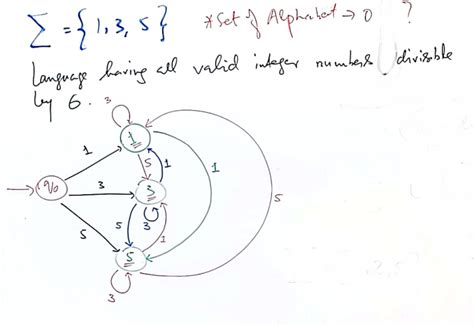 Σ = {1, 3, 5} *Set of Alphabet → 0 ?
Language having all valid integer numbers divisible
by 6.
3
1
1
5
1
1
% 3 3
5
5 3 1
5
5
3